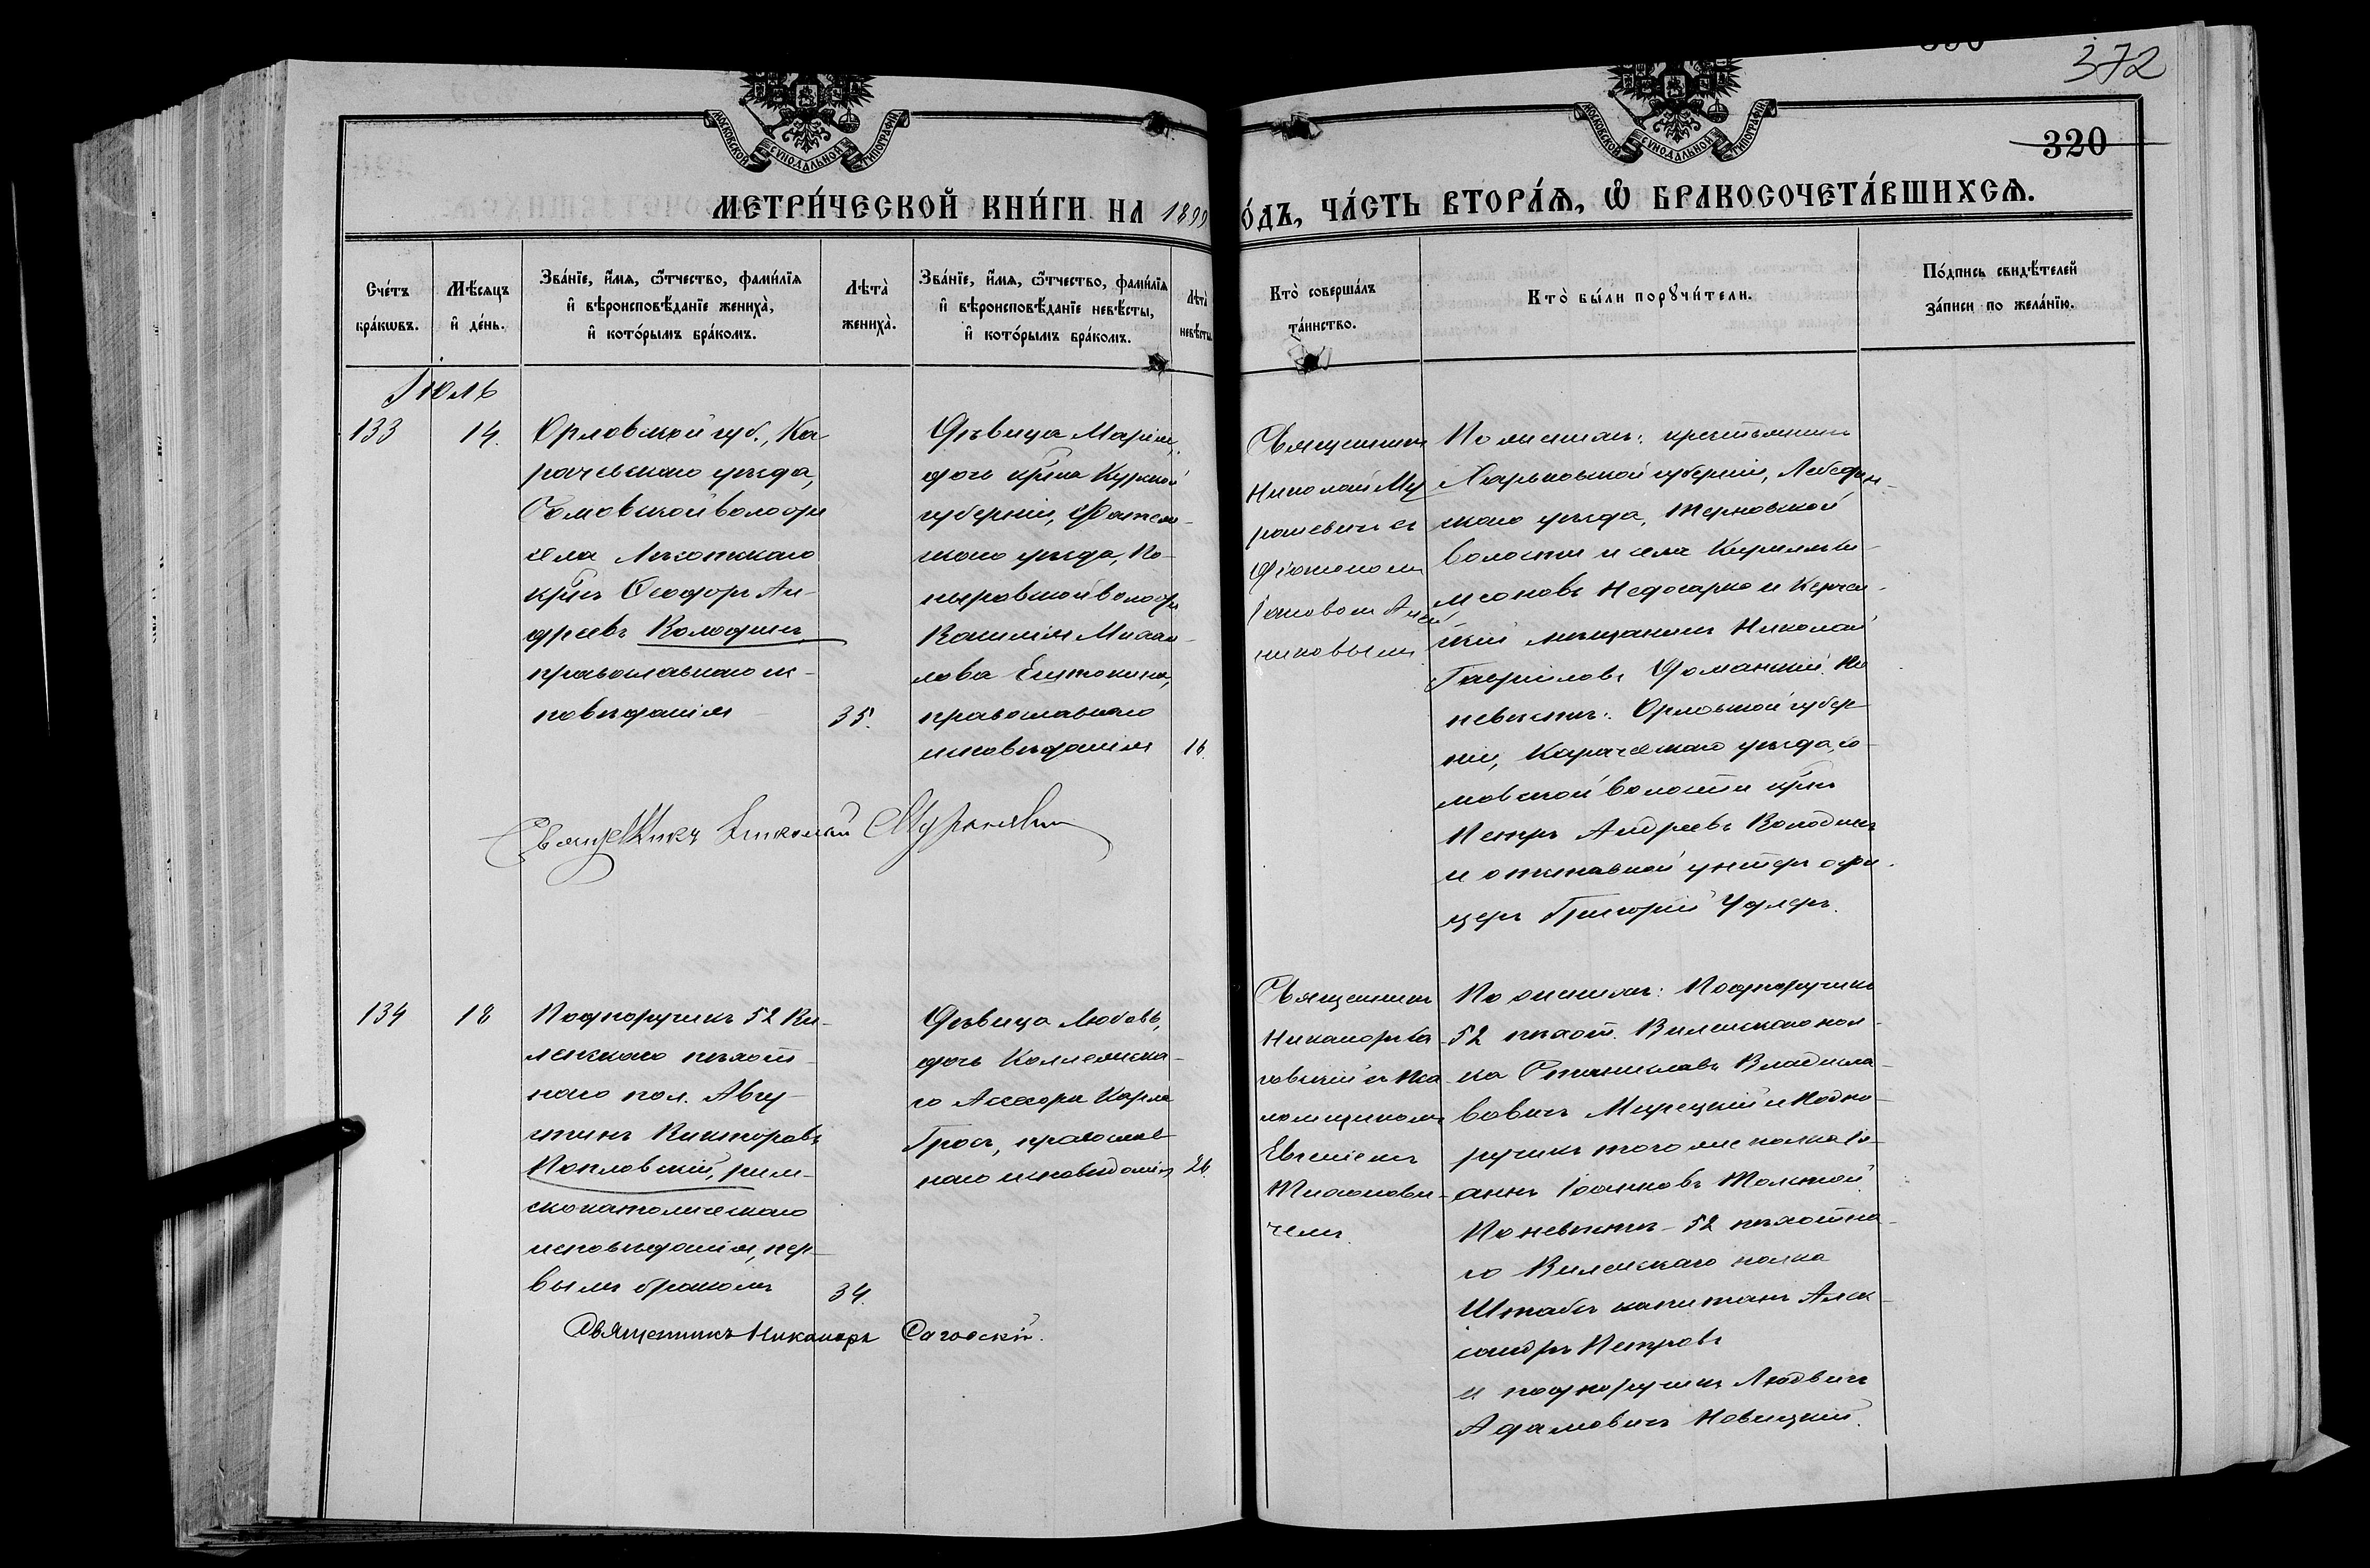 372
320
МОСКОВСКОЙ СѴНОДАЛЬНОЙ ТИПОГРАФІИ
МОСКОВСКОЙ СѴНОДАЛЬНОЙ ТИПОГРАФІИ
МЕТРИ́ЧЕСКОЙ КНИ́ГИ НА 1899
О́ДЪ, ЧА́СТЬ ВТОРА́Я, Ѡ БРАКОСОЧЕТА́ВШИХСЯ.
Сче́тъ бра́кѡвъ.
Мѣ́сяцъ и де́нь.
Зва́нїе, и́мя, ѻ́тчество, фами́лїя
и вѣроисповѣ́данїе жениха̀,
и кото́рымъ бра́комъ.
Лѣта̀ жениха̀.
Зва́нїе, и́мя, ѻ́тчество, фами́лїя
и вѣроисповѣ́данїе невѣ́сты,
и кото́рымъ бра́комъ.
Лѣта̀ невѣ́сты.
Кто̀ соверша́лъ
та́инство.
Кто̀ бы́ли порꙋчи́тели.
По́дпись свидѣ́телей
за́писи по жела́нїю.
Іюль
133
14.
Орловской губ., Ка-
рачевскаго уѣзда,
волости
села
кр̃нъ Ѳеодоръ Ан-
дреевъ Володинъ
православнаго ис-
повѣданія
35.
Дѣвица Марія,
дочь кр̃на Курской
губерніи, Фатеж-
скаго уѣзда, По-
ныровской волости
Василія Михаи-
лова
православнаго
исповѣданія
16.
Священникъ
Николай Му
раневичъ съ
діакономъ
Іаковомъ
никовымъ
По женихѣ: крестьянинъ
Харьковской губерніи, Лебедин-
скаго уѣзда, Терновской
волости и села
Керчен-
скій мѣщанинъ Николай
Гавріиловъ Романскій. По
невѣстѣ: Орловской губер-
ніи, Карачевскаго уѣзда,
волости кр̃нъ
Петръ Андреевъ Володинъ
и отставной унтеръ офи-
церъ Григорій
Священникъ Николай Мураневичъ
134
18
Подпоручикъ 52 Ви-
ленскаго пѣхот-
наго пол. Авгу-
стинъ Викторовъ
Козловскій, рим-
скокатолическаго
исповѣданія, пер-
вымъ бракомъ
34.
Дѣвица Любовь,
дочь Коллежска-
го Ассесора Карла
Гросъ, православ-
наго исповѣданія
26.
Священникъ
Никаноръ Са
говскій съ Пса
ломщикомъ
Евгеніемъ
Тихонови-
чемъ.
По женихѣ: Подпоручикъ
52 пѣхот. Виленскаго пол-
ка Станиславъ Владисла-
вовичъ Мирецкій и Подпо-
ручикъ того же полка Іо-
аннъ Іоанновъ Толстой.
По невѣстѣ - 52 пѣхотна-
го Виленскаго полка
Штабсъ капитанъ Алек-
сандръ Петровъ
и подпоручикъ Людвигъ
Адамовичъ Новицкій.
Священникъ Никаноръ Саговскій.